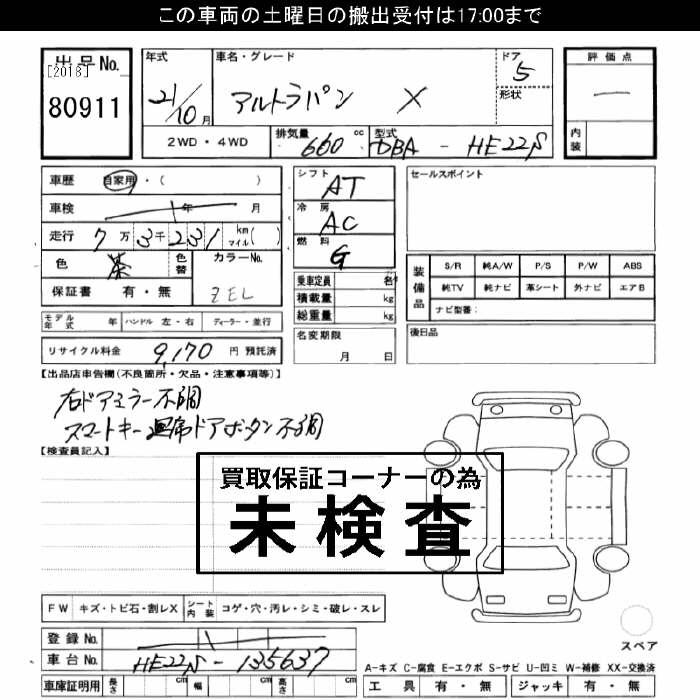 この車両の土曜日の搬出受付は17:00まで
出品No.
[2018]
80911
年式
21/10月
車名・グレード
アルトラパン X
ドア
5
形状
評価点
内装
2WD・4WD
排気量
660 cc
型式
DBA - HE22S
車歴 自家用・( )
車検 年 月
走行 7万3千231 km マイル( )
色 茶 色替
カラーNo.
ZEL
保証書 有・無
モデル年式 年 ハンドル 左・右 ディーラー・並行
リサイクル料金 9,170 円 預託済
シフト
AT
冷房
AC
燃料
G
乗車定員 名
積載量 kg
総重量 kg
名変期限
月 日
セールスポイント
装備品
S/R 純A/W P/S P/W ABS
純TV 純ナビ 革シート 外ナビ エアB
ナビ型番:
後日品
【出品店車告欄(不良箇所・欠品・注意事項等)】
右ドアミラー不調
スマートキー 運席ドアボタン不調
【検査員記入】
買取保証コーナーの為
未検査
FW キズ・トビ石・割レX シート内装 コゲ・穴・汚レ・シミ・破レ・スレ
登録No.
車台No. HE22S-135637
車庫証明用 長さ cm 幅 cm 高さ cm
スペア
A-キズ C-腐食 E-エクボ S-サビ U-凹ミ W-補修 XX-交換済
工具 有・無 ジャッキ 有・無